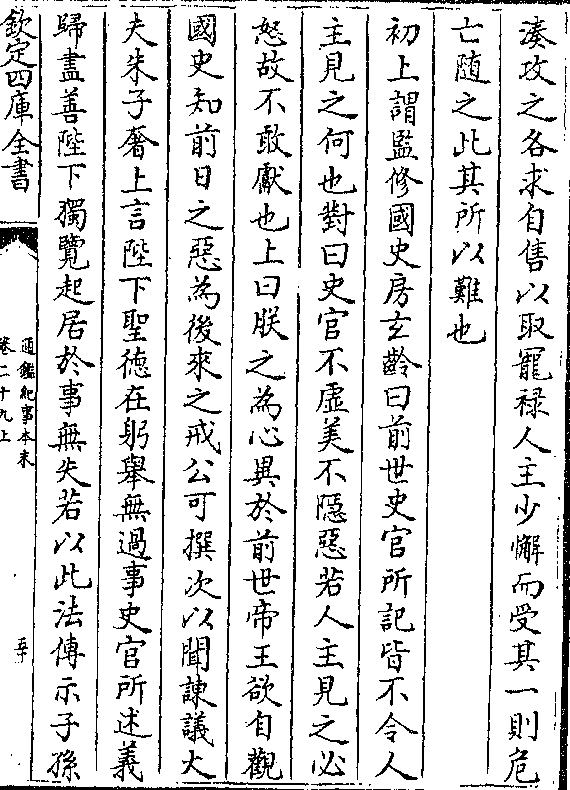 湊攻之各求自售以取寵祿人主少懈而受其一則危
亡随之此其所以難也
初上謂監修國史房玄齡曰前世史官所記皆不令人
主見之何也對曰史官不虛美不隱惡若人主見之必
怒故不敢獻也上曰朕之為心異於前世帝王欲自觀
國史知前日之惡為後來之戒公可撰次以聞諫議大
夫朱子奢上言陛下聖徳在躬舉無過事史官所述義
歸盡善陛下獨覽起居於事無失若以此法傳示子孫
欽定四庫全書
通鑑紀事本末
卷二十九上
五十